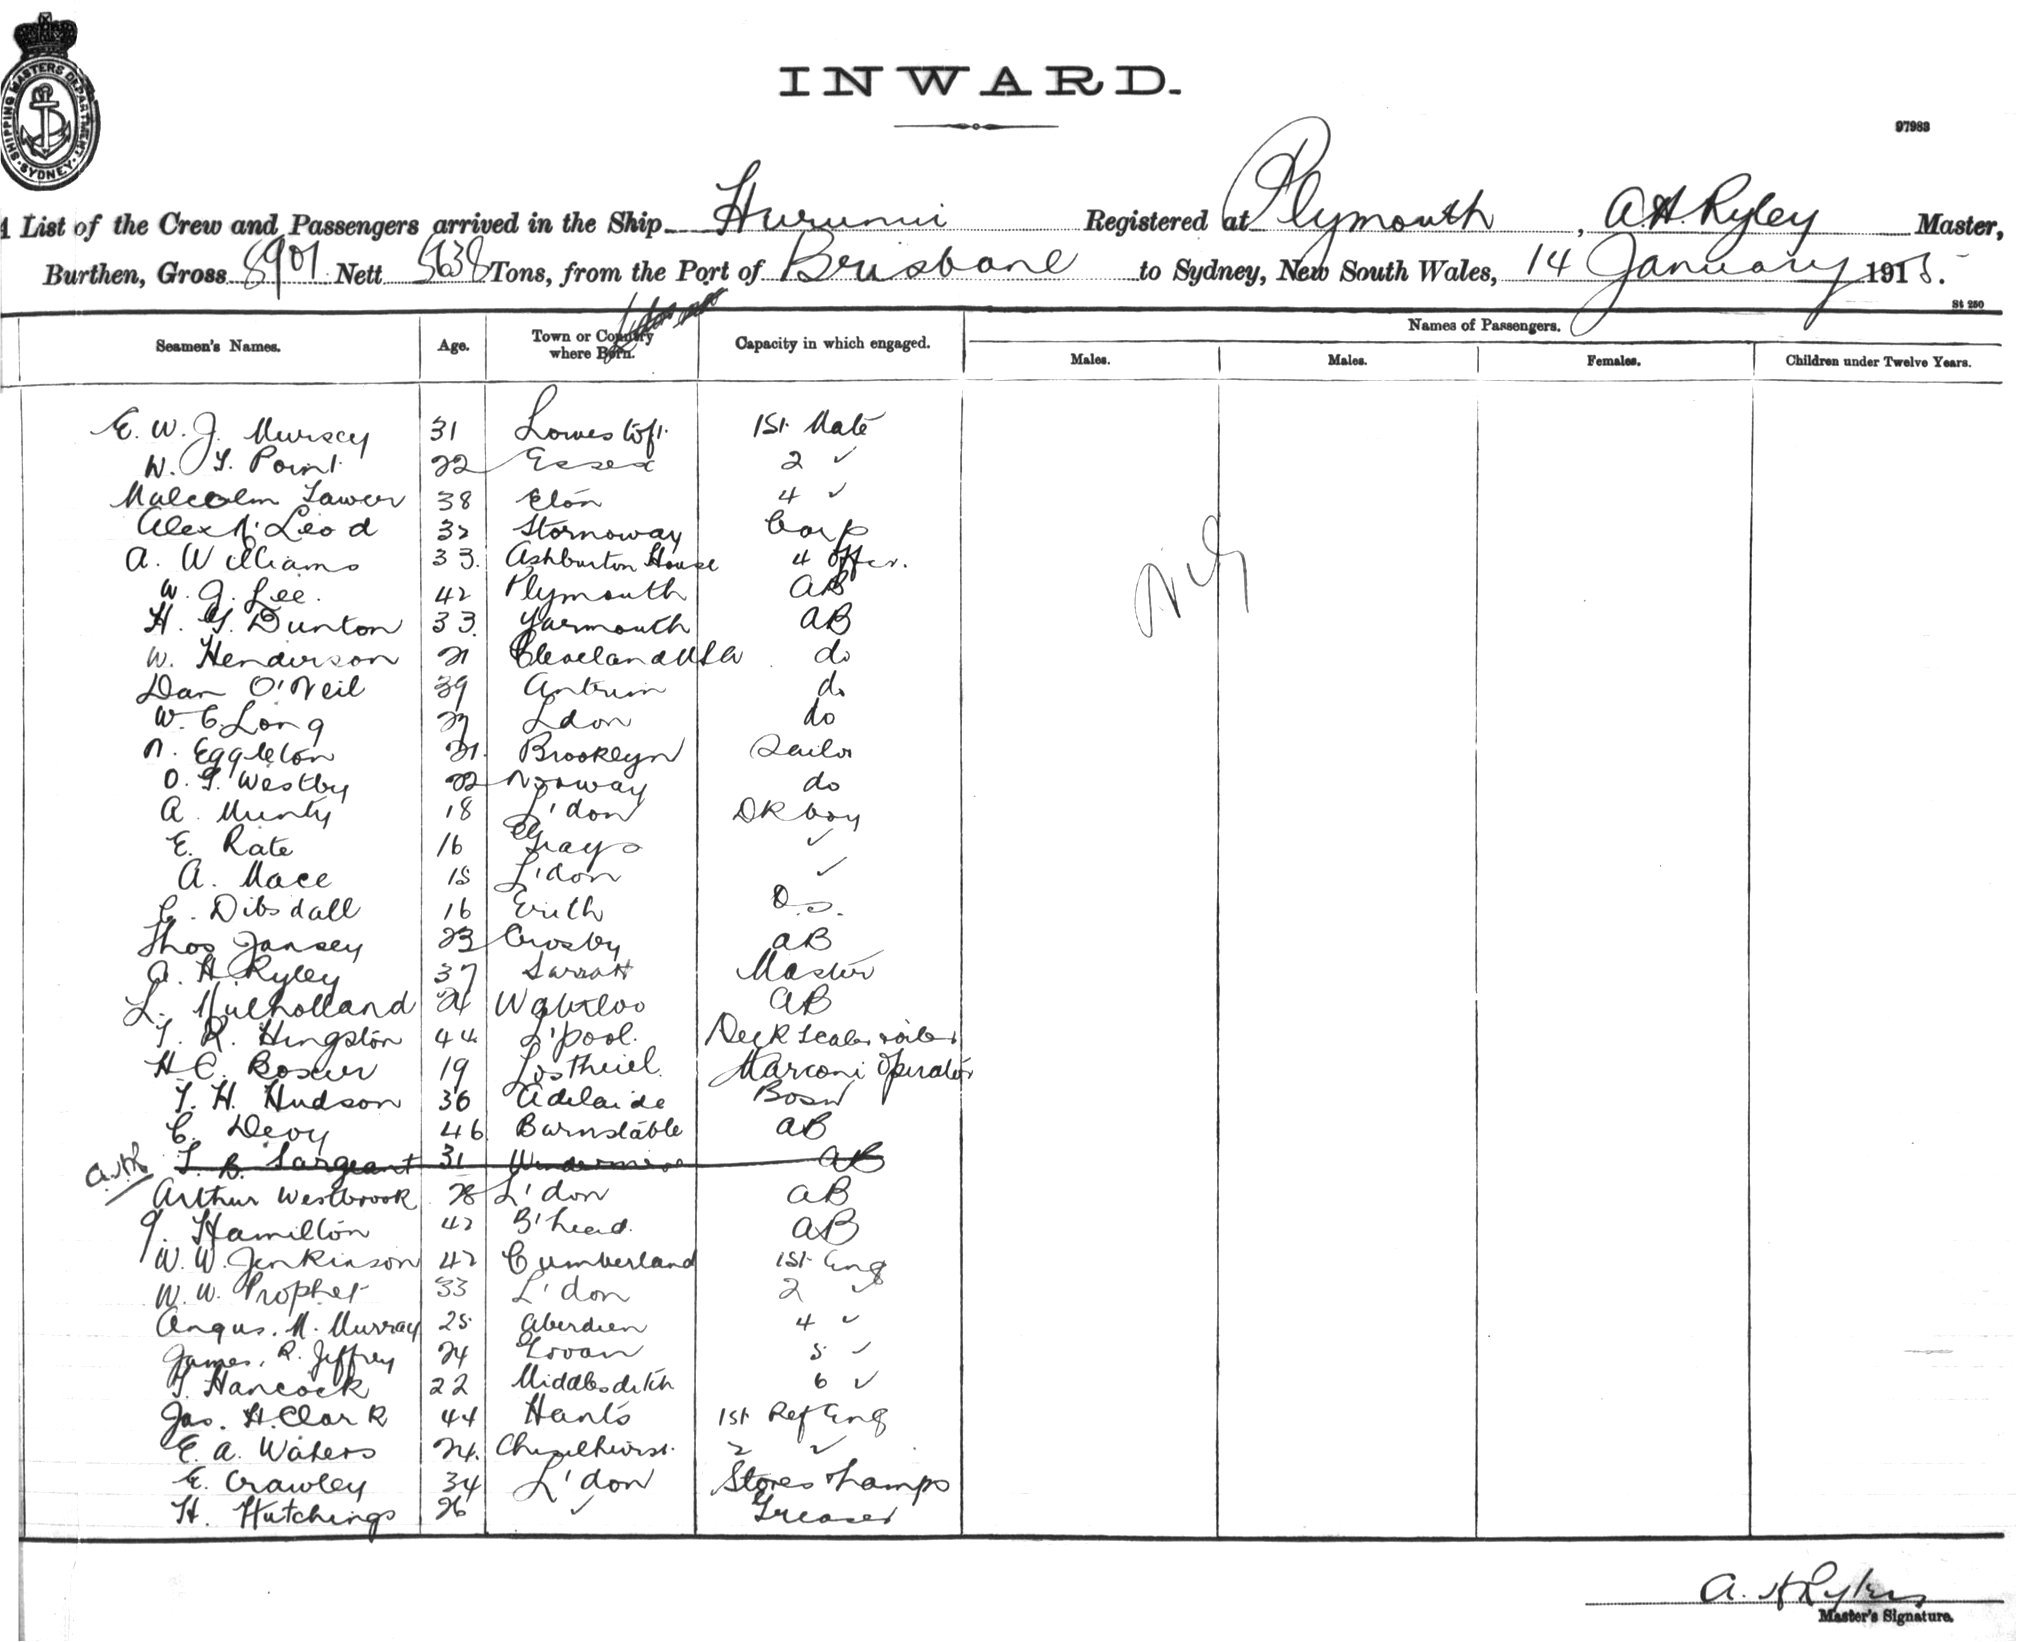 SHIPPING MASTERS DEPARTMENT
SYDNEY
INWARD.
97983
A List of the Crew and Passengers arrived in the Ship Hurunui Registered at Plymouth, A.H. Ryley Master,
Burthen, Gross 8901 Nett 5638 Tons, from the Port of Brisbane to Sydney, New South Wales, 14 January 1915.
St 250
Seamen's Names. Age. Town or Country where Born. Capacity in which engaged. Names of Passengers.
Males. Males. Females. Children under Twelve Years.
E. W. J. 31 Lowestoft 1st Mate
W. Point 22 Essex 2 ✓
Malcolm 38 4 ✓
Alex McLeod 32 Stornoway Carp
A. Williams 33. Ashburton House 4 Offcr.
W. J. Lee. 42 Plymouth AB
H. G. Dunton 33. Yarmouth AB
W. Henderson 21 Cleveland USA do
Dan O'Neil 39 Antrim do
Nil
W. C. Long 27 Ldon do
N. Eggleton 21. Brooklyn Sailor
O. G. Westby 22 Norway do
A. Munty 18 L'don DK boy
E. Rate 16 Grays ✓
A. Mace 15 L'don ✓
C. Dibsdall 16 Erith O.S.
Thos Jansey 23 Crosby AB
A. H. Ryley 37 Sarratt Master
L. Mulholland 24 Waterloo AB
T. R. Hingston 44 L'pool. Deck
H C. 19 Marconi Operator
T. H. Hudson 36 Adelaide Bosn
C. Devoy 46 Barnstable AB
A.H.R T. B. Sargeant 31 Windermere AB
Arthur Westbrook 28 L'don AB
J. Hamilton 42 B'head. AB
W. W. Jenkinson 42 Cumberland 1st Eng
W. W. Prophet 33 L'don 2 ✓
Angus. M. Murray 25 Aberdeen 4 ✓
James. R. Jeffrey 24 Govan 5 ✓
T. Hancock 22 6 ✓
Jas. H. Clark 44 Hants 1st Ref Eng
E. A. Waters 24. Chiselhurst. 2 ✓
E. Crawley 34 L'don Stores & Lamps
H. Hutchings 26 ✓ Greaser
A. H Ryley
Master's Signature.